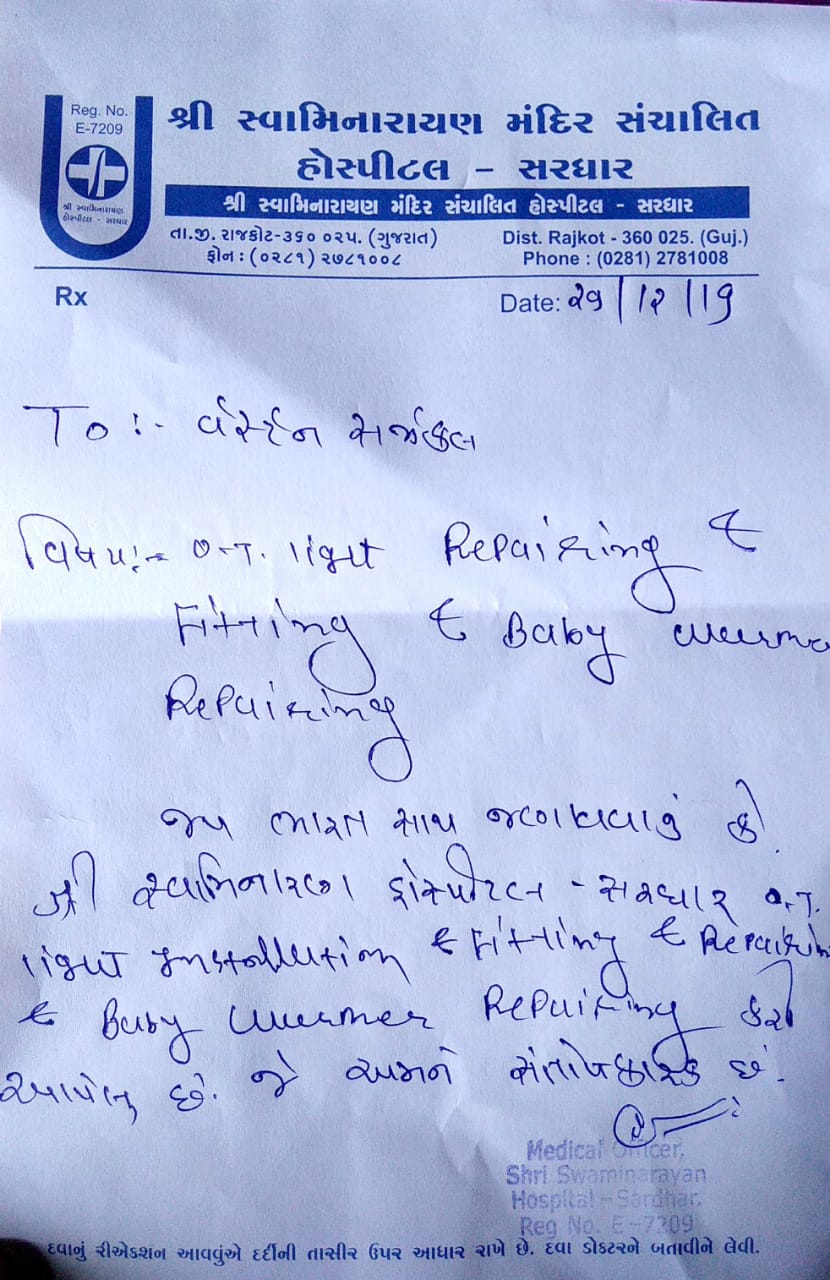 Reg. No.
E-7209
શ્રી સ્વામિનારાયણ
હોસ્પીટલ - સરધાર
શ્રી સ્વામિનારાયણ મંદિર સંચાલિત
હોસ્પીટલ - સરધાર
શ્રી સ્વામિનારાયણ મંદિર સંચાલિત હોસ્પીટલ - સરધાર
તા.જી. રાજકોટ-૩૬૦ ૦૨૫. (ગુજરાત) Dist. Rajkot - 360 025. (Guj.)
ફોન : (૦૨૮૧) ૨૭૮૧૦૦૮ Phone : (0281) 2781008
Rx Date: ૨૧/૧૨/19
To :- વેસ્ટર્ન સર્જીકલ
વિષય :- O.T. light Repairing &
Fitting & Baby
Repairing
જય ભારત સાથ જણાવવાનું કે
શ્રી સ્વામિનારાયણ હોસ્પીટલ - સરધાર O.T.
light Installation & Fitting & Repairing
& Baby Wuermer Repairing કરી
આપેલ છે. જે અમને સંતોષકારક છે.
Medical Officer,
Shri Swaminarayan
Hospital - Sardhar.
Reg No. E-7209
દવાનું રીએકશન આવવુંએ દર્દીની તાસીર ઉપર આધાર રાખે છે. દવા ડોકટરને બતાવીને લેવી.